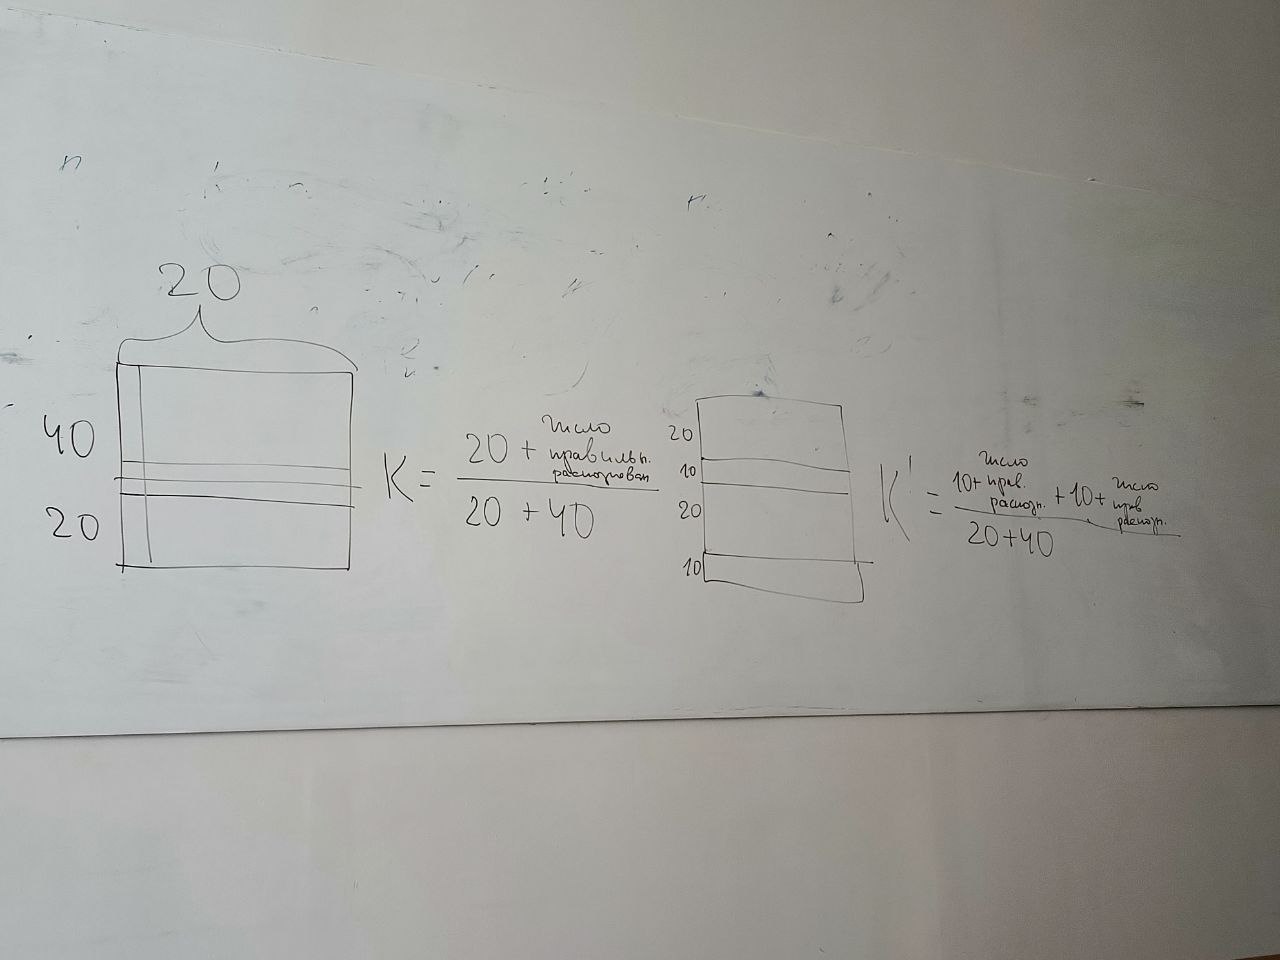 20
40
20
K = 20 + число правильн. распознован
20 + 40
20
10
20
10
K' = 10+ число прав. распозн. + 10+ число прав распозн.
20+40